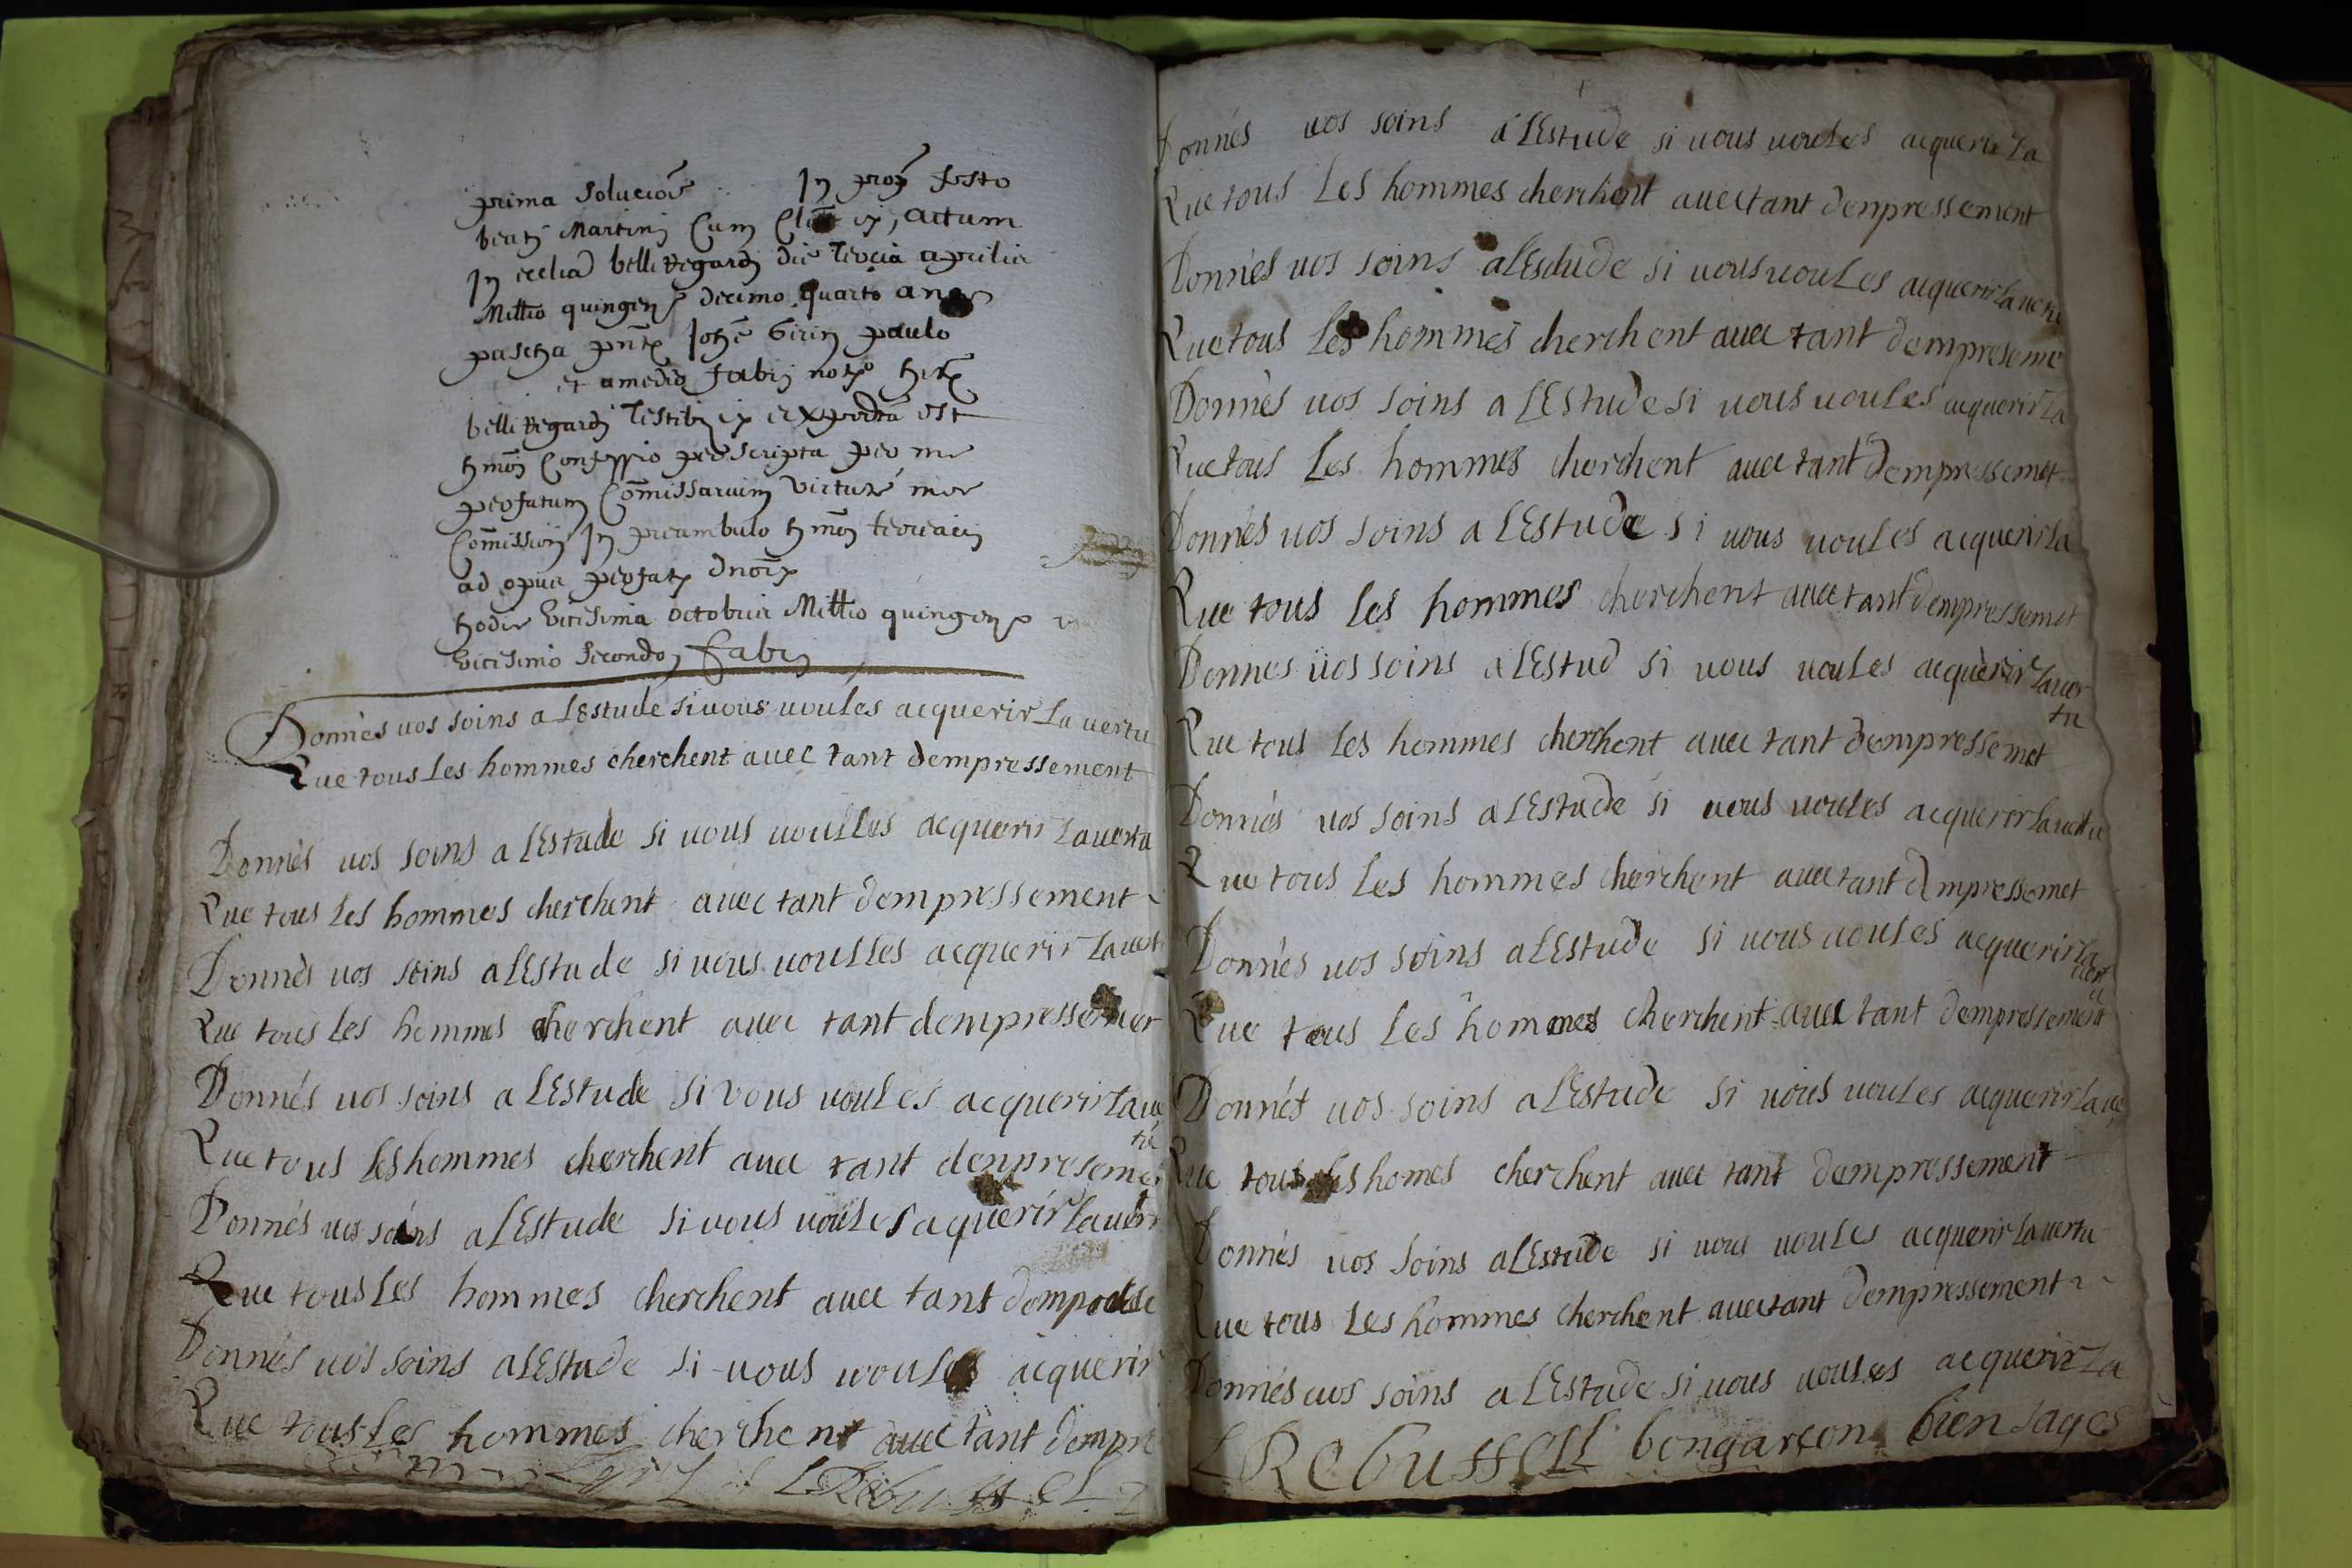 prima solucioe In prox festo
beati Martini Cum Cl ex, actum
In ecclia bellivegardi die tercia aprilis
Millio quingen decimo quarto an
pascha pntx Johe Girin paulo
et amedio fabri notio
bellivegardi testibz et expedita est
hmoi Confessio prescripta per me
prefatum Comissarium virtute mee
Comissiois In preambulo hmoi terrearii
ad opus prefati dnoix
hodie vicesima octobris Millio quingen
vicesimo secondo fabri
Donnés vos soins a LEstude si vous voules acquerir La vertu
Que tous Les hommes cherchent avec tant dempressement
Donnés vos soins a LEstude si vous voulles acquerir La vertu
Que tous Les hommes cherchent avec tant dempressement
Donnés vos soins a LEstude si vous voulles acquerir La vert
Que tous Les hommes cherchent avec tant dempressemet
Donnés vos soins a LEstude si vous voules acquerir La ve
tu
Que tous les hommes cherchent avec tant denpreseme
Donnés vos soins a LEstude si vous voules aquerir La vert
Que tous Les hommes cherchent avec tant
Donnés vos soins a LEstude si vous voules acquerir
Que tous Les hommes cherchent avec tant dempre
L Rebussel
Donnés vos soins a LEstude si vous voules acquerir La
Que tous Les hommes cherchent avec tant denpressement
Donnés vos soins a LEsdude si vous voules acquerir la vertu
Que tous Les hommes cherchent avec tant dempreseme
Donnés vos soins a LEstude si vous voules acquerir La
Que tous Les hommes cherchent avec tant dempressemet
Donnés vos soins a LEstude si vous voules acquerir la
Que tous les hommes cherchent avec tant dempressemet
Donnes vos soins a LEstud si vous voules acquerir La ver
tu
Que tous les hommes cherchent avec tant dempressemet
Donnés vos soins a LEstude si vous voules acquerir la vertu
Que tous Les hommes cherchent avec tant dmpressemet
Donnés vos soins a LEstude si vous voules acquerir la
vert
u
Que tous Les hommes cherchent avec tant dempressement
Donnés vos soins a LEstude si vous voules acquerir la ve
Que tous les homes cherchent avec tant dempressement
Donnés vos soins a LEstude si vous voules acquerir la vertu
Que tous Les hommes cherchent avec tant dempressement
Donnés vos soins a LEstude si vous voules acquerir La
L Rebussell bongarçon bien sages